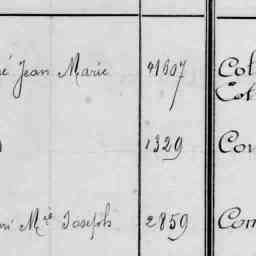 é Jean Marie 41607 Col
Col
1329 Con
ni M.ie Joseph 2859 Com